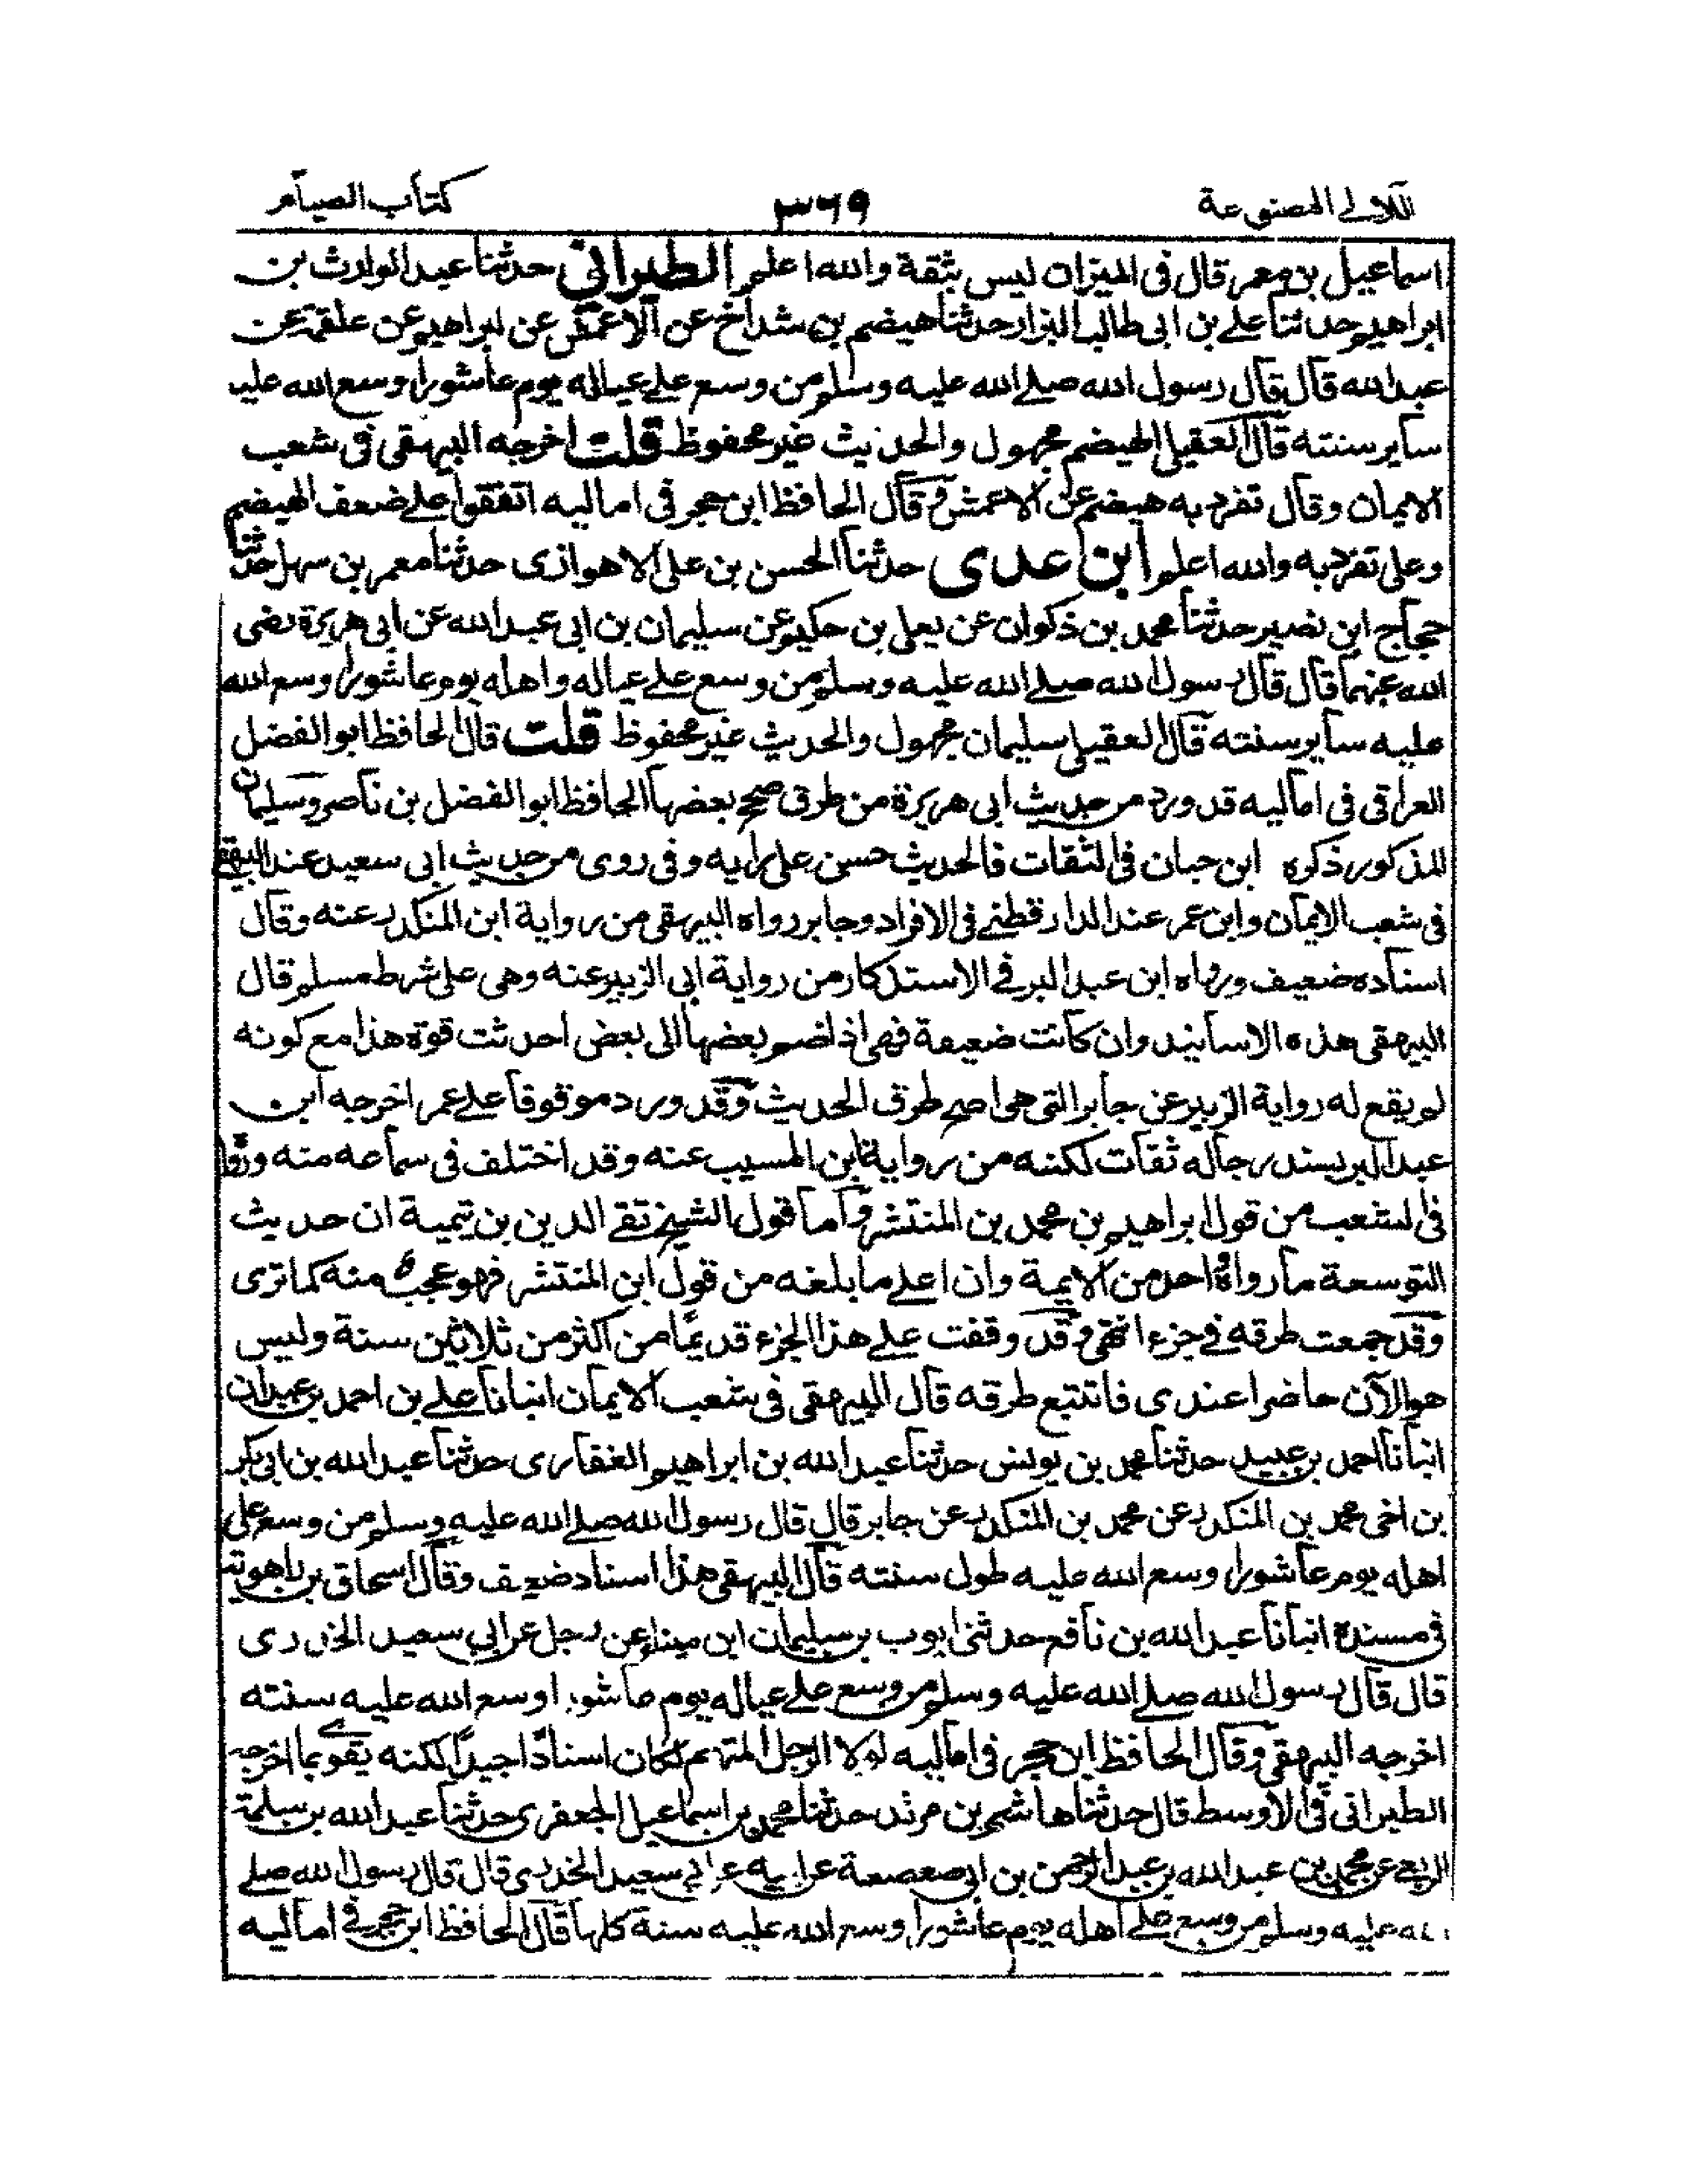 اللآلى المصنوعة ٣٦٩ كتاب الصيام
اسماعيل بن معمر قال فى الميزان ليس بثقة والله اعلم الطبرانى حدثنا عبد الوارث بن
ابراهيم حدثنا على بن ابى طالب البزار حدثنا هيضم بن شداخ عن الاعمش عن ابراهيم عن علقمة عن
عبد الله قال قال رسول الله صلے الله عليه وسلم من وسع علے عياله يوم عاشورا وسع الله عليه
ساير سنته قال العقيلى الهيضم مجهول والحديث غير محفوظ قلت اخرجه البيهقى فى شعب
الايمان وقال تفرد به هيضم عن الاعمش وقال الحافظ ابن حجر فى اماليه اتفقوا علے ضعف الهيضم
وعلى تفرده به والله اعلم ابن عدى حدثنا الحسن بن على الاهوازى حدثنا معمر بن سهل حدثنا
حجاج ابن نصير حدثنا محمد بن ذكوان عن يعلى بن حكيم عن سليمان بن ابى عبد الله عن ابى هريرة رضى
الله عنهما قال قال رسول الله صلے الله عليه وسلم من وسع علے عياله واهله يوم عاشورا وسع الله
عليه ساير سنته قال العقيلى سليمان مجهول والحديث غير محفوظ قلت قال الحافظ ابو الفضل
العراقى فى اماليه قد ورد من حديث ابى هريرة من طرق صحح بعضها الحافظ ابو الفضل بن ناصر وسليمان
المذكور ذكره ابن حبان فى الثقات فالحديث حسن على رايه وفى روى من حديث ابى سعيد عند البيهقى
فى شعب الايمان وابن عمر عند الدارقطنے فى الافراد وجابر رواه البيهقى من رواية ابن المنكدر عنه وقال
اسناده ضعيف ورواه ابن عبد البر فے الاستذكار من رواية ابى الزبير عنه وهى على شرط مسلم قال
البيهقى هذه الاسانيد وان كانت ضعيفة فهى اذا ضم بعضها الى بعض احدثت قوة هذا مع كونه
لم يقع له رواية الزبير عن جابر التى هى اصح طرق الحديث وقد ورد موقوفا علے عمر اخرجه ابن
عبد البر بسند رجاله ثقات لكنه من رواية ابن المسيب عنه وقد اختلف فى سماعه منه ورواه
فى الشعب من قول ابراهيم بن محمد بن المنتشر واما قول الشيخ تقے الدين بن تيمية ان حديث
التوسعة ما رواه احد من الايمة وان اعلے ما بلغه من قول ابن المنتشر فهو عجب منه كما ترى
وقد جمعت طرقه فے جزء انتهى وقد وقفت علے هذا الجزء قديما من اكثر من ثلاثين سنة وليس
هو الآن حاضرا عندى فاتتبع طرقه قال البيهقى فى شعب الايمان انبانا علے بن احمد بن عبدان
انبانا احمد بن عبيد حدثنا محمد بن يونس حدثنا عبد الله بن ابراهيم الغفارى حدثنا عبد الله بن ابى بكر
بن اخى محمد بن المنكدر عن محمد بن المنكدر عن جابر قال قال رسول الله صلے الله عليه وسلم من وسع على
اهله يوم عاشورا وسع الله عليه طول سنته قال البيهقى هذا اسناد ضعيف وقال اسحاق بن راهويه
فى مسنده انبانا عبد الله بن نافع حدثنى ايوب بن سليمان ابن ميناء عن رجل عن ابى سعيد الخدرى
قال قال رسول الله صلے الله عليه وسلم من وسع علے عياله يوم عاشورا وسع الله عليه سنته
اخرجه البيهقى وقال الحافظ ابن حجر فى اماليه لولا الرجل المتهم لكان اسنادا جيدا لكنه يقوے بما اخرجه
الطبرانى فى الاوسط قال حدثنا هاشم بن مرثد حدثنا محمد بن اسماعيل الجعفرى حدثنا عبد الله بن سلمة
الربعے عن محمد بن عبد الله بن عبد الرحمن بن ابى صعصعة عن ابيه عن ابى سعيد الخدرى قال قال رسول الله صلے
الله عليه وسلم من وسع علے اهله يوم عاشورا وسع الله عليه سنة كلها قال الحافظ ابن حجر فے اماليه